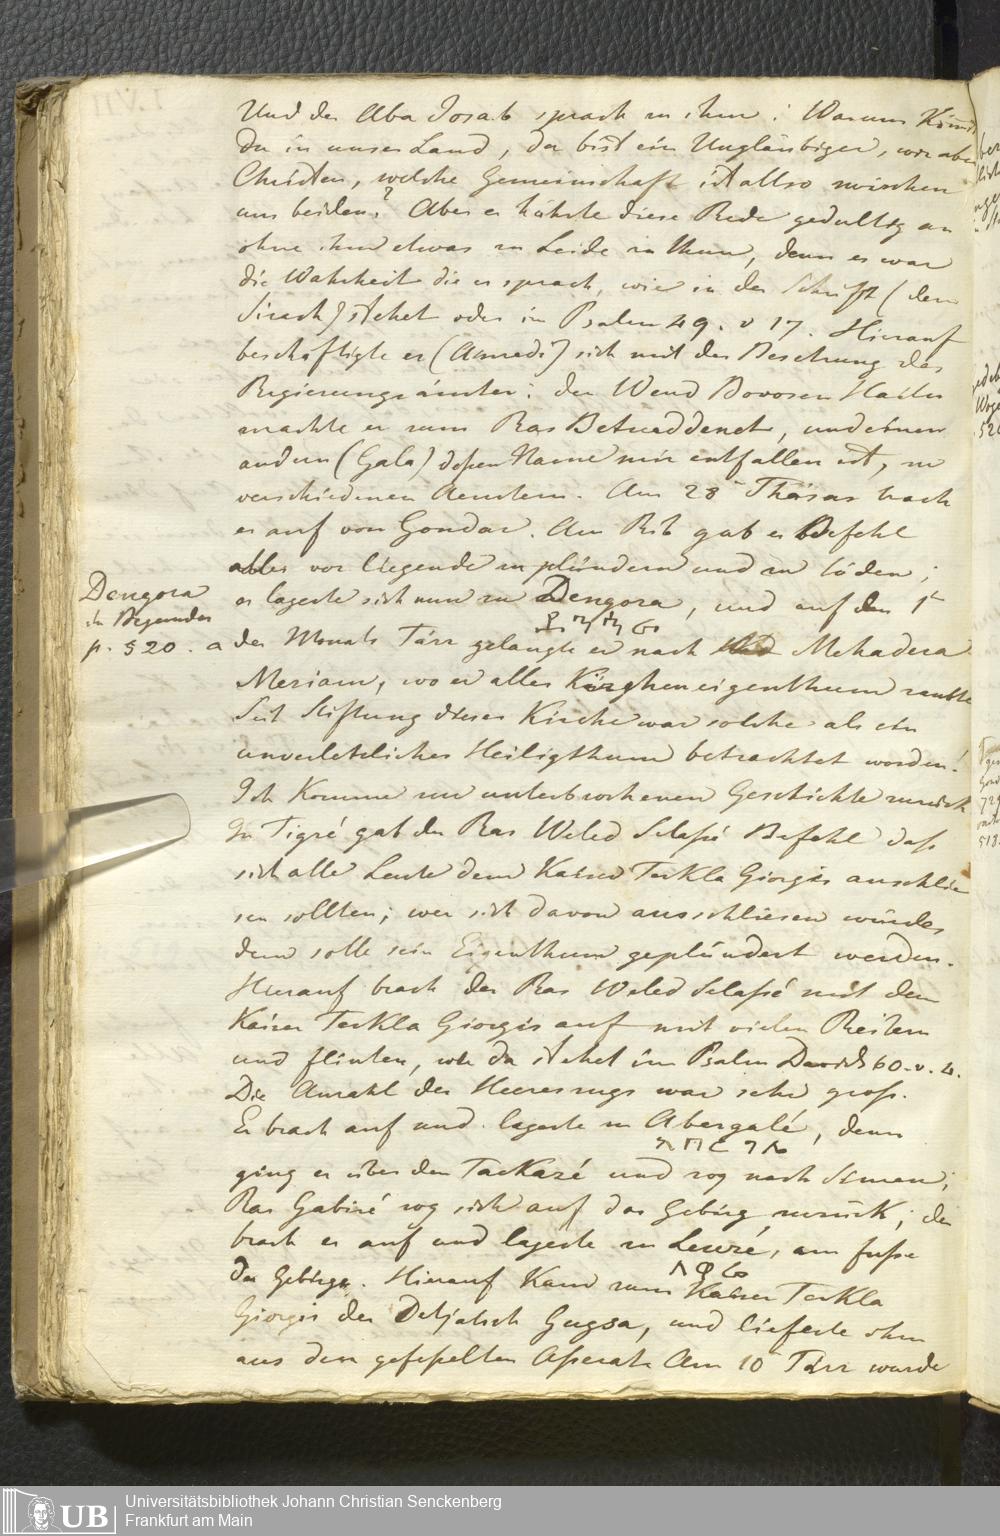 Und der Aba Josab sprach zu ihm: Warum Kömst
du in unser Land, du bist ein Ungläubiger, wir aber
Christen, welche Gemeinschaft ist allso zwischen
uns beiden? Aber er hörte diese Rede gedultig an
ohne ihm etwas zu Leide zu thun, denn es war
die Wahrheit die er sprach, wie in der Schrift (dem
Sirach) stehet oder im Psalm 49. v 17. Hierauf
beschäftigte er sich mit der Besetzung der
Regierungsämter: den Wend Bovosen Hailu
machte er zum Ras Betwaddenet, und einen
andern (Gala) dessen Name mir entfallen ist, zu
verschiedenen Aemtern. Am 28 Thasas brach
er auf von Gondar. Am Rib gab er Befehl
alles vor liegende zu plündern und zu töden;
er lagerte sich nun zu Dengora, und auf den 1t
Dengora
in Begemder
p. 520. a
des Monats Tärr gelangte er nach Mehadera
Meriam, wo er alles Kirgheneigenthum raubte
Seit Stiftung dieser Kirche war solche als ein
unverletzliches Heiligthum betrachtet worden!
Ich Komme zur unterbrochenen Geschichte zurück
In Tigré gab der Ras Weled Selassé Befehl dass
sich alle Leute dem Kaiser Teckla Giorgis anschlie
sen sollten; wer sich davon ausschliesen würde,
dem solle sein Eigenthum geplündert werden.
Hierauf brach der Ras Weled Selassé mit dem
Kaiser Teckla Giorgis auf mit vielen Reitern
und flinten, wie da stehet im Psalm Davids 60. v. 4.
Die Anzahl des Heereszugs war sehr gross.
Er brach auf und lagerte zu Abergalé, dann
አበርጋሌ
ging er über den Tackazé und zog nach Simen;
Ras Gabiré zog sich auf das Gebirg zurück; da
brach er auf und lagerte zu Lewré, am fusse
des Gebirgs. Hierauf Kam zum Kaiser Teckla
Giorgis der Detjatsch Gugsa, und lieferte ihm
aus den gefesselten Asserat. Am 10 Tärr wurde
Universitätsbibliothek Johann Christian Senckenberg
Frankfurt am Main
UB